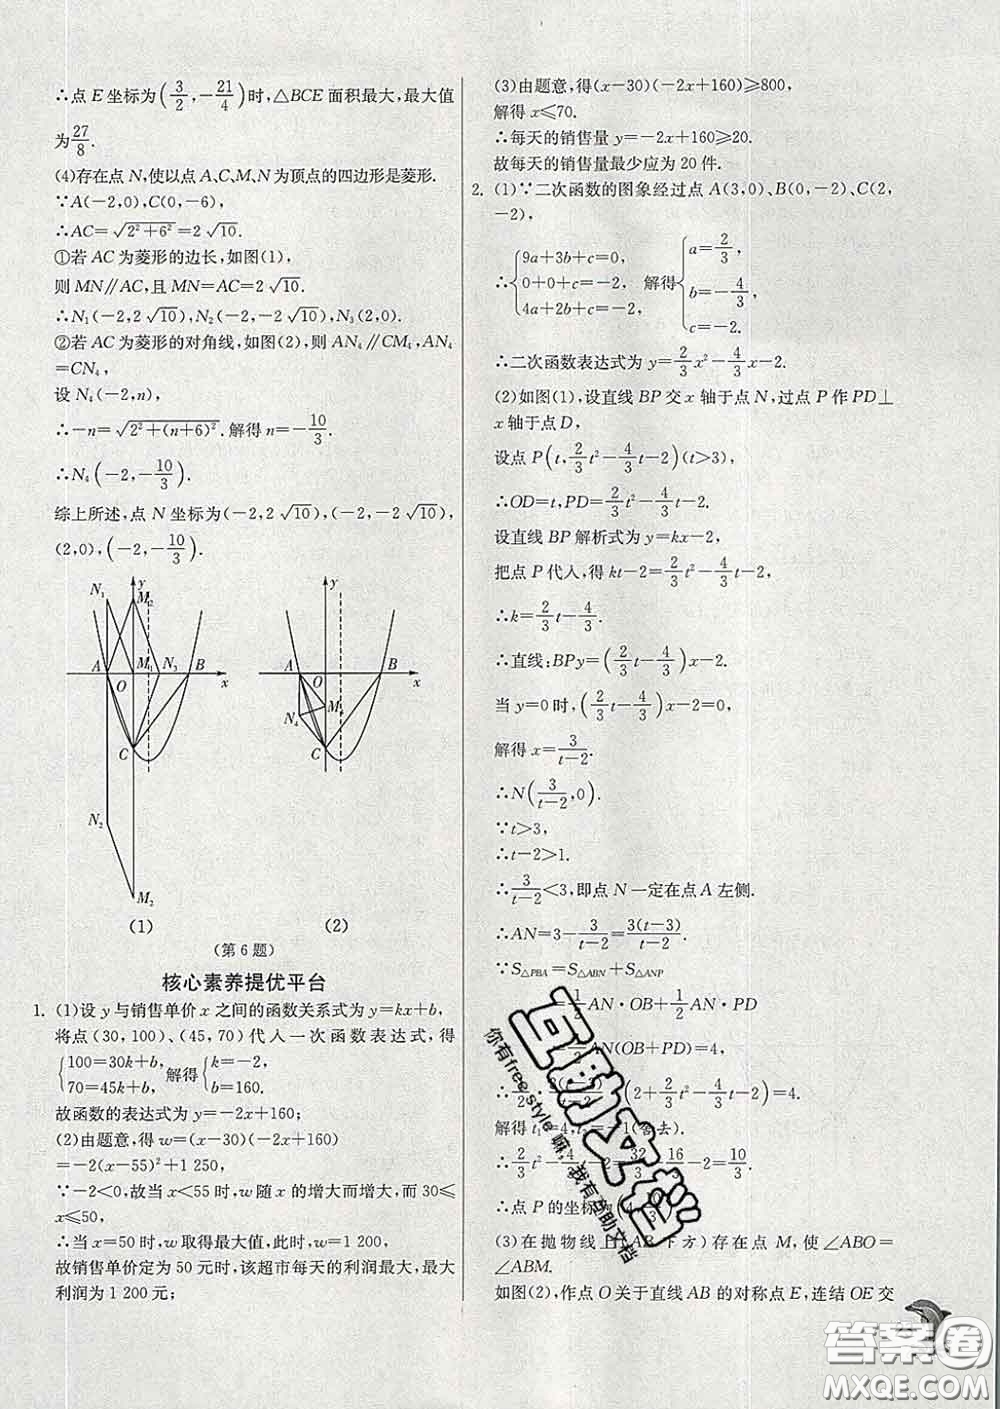 ∴点 E 坐标为(3/2,-21/4)时,△BCE 面积最大,最大值
为27/8.
(4)存在点 N,使以点 A、C、M、N 为顶点的四边形是菱形.
∵A(-2,0),C(0,-6),
∴AC=√(2²+6²)=2√10.
①若 AC 为菱形的边长,如图(1),
则 MN∥AC,且 MN=AC=2√10.
∴N₁(-2,2√10),N₂(-2,-2√10),N₃(2,0).
②若 AC 为菱形的对角线,如图(2),则 AN₄∥CM₄,AN₄
=CN₄,
设 N₄(-2,n),
∴-n=√(2²+(n+6)²).解得 n=-10/3.
∴N₄(-2,-10/3).
综上所述,点 N 坐标为(-2,2√10),(-2,-2√10),
(2,0),(-2,-10/3).
N₁ y M₂ A O M₁ N₃ B x C N₂ M₂
y A O B x N₄ M₄ C
(1) (2)
(第 6 题)
核心素养提优平台
1. (1)设 y 与销售单价 x 之间的函数关系式为 y=kx+b,
将点(30,100)、(45,70)代入一次函数表达式,得
{100=30k+b, 70=45k+b, 解得{k=-2, b=160.
故函数的表达式为 y=-2x+160;
(2)由题意,得 w=(x-30)(-2x+160)
=-2(x-55)²+1 250,
∵-2<0,故当 x<55 时,w 随 x 的增大而增大,而 30≤
x≤50,
∴当 x=50 时,w 取得最大值,此时,w=1 200,
故销售单价定为 50 元时,该超市每天的利润最大,最大
利润为 1 200 元;
(3)由题意,得(x-30)(-2x+160)≥800,
解得 x≤70.
∴每天的销售量 y=-2x+160≥20.
故每天的销售量最少应为 20 件.
2. (1)∵二次函数的图象经过点 A(3,0)、B(0,-2)、C(2,
-2),
∴{9a+3b+c=0, 0+0+c=-2, 4a+2b+c=-2, 解得{a=2/3, b=-4/3, c=-2.
∴二次函数表达式为 y=2/3x²-4/3x-2.
(2)如图(1),设直线 BP 交 x 轴于点 N,过点 P 作 PD⊥
x 轴于点 D,
设点 P(t,2/3t²-4/3t-2)(t>3),
∴OD=t,PD=2/3t²-4/3t-2.
设直线 BP 解析式为 y=kx-2,
把点 P 代入,得 kt-2=2/3t²-4/3t-2,
∴k=2/3t-4/3.
∴直线:BPy=(2/3t-4/3)x-2.
当 y=0 时,(2/3t-4/3)x-2=0,
解得 x=3/(t-2).
∴N(3/(t-2),0).
∵t>3,
∴t-2>1.
∴3/(t-2)<3,即点 N 一定在点 A 左侧.
∴AN=3-3/(t-2)=3(t-3)/(t-2).
∵S△PBA=S△ABN+S△ANP
=1/2AN·OB+1/2AN·PD
=1/2AN(OB+PD)=4,
∴1/2· (2+2/3t²-4/3t-2)=4.
解得 t₁=4,t₂=-1(舍去).
∴2/3t²-4/3t-2=32/3-16/3-2=10/3.
∴点 P 的坐标为(4,10/3).
(3)在抛物线上(AB 下方)存在点 M,使∠ABO=
∠ABM.
如图(2),作点 O 关于直线 AB 的对称点 E,连结 OE 交
互助文档
你有free style 嘛,我有互助文档
答案圈
MXQE.COM